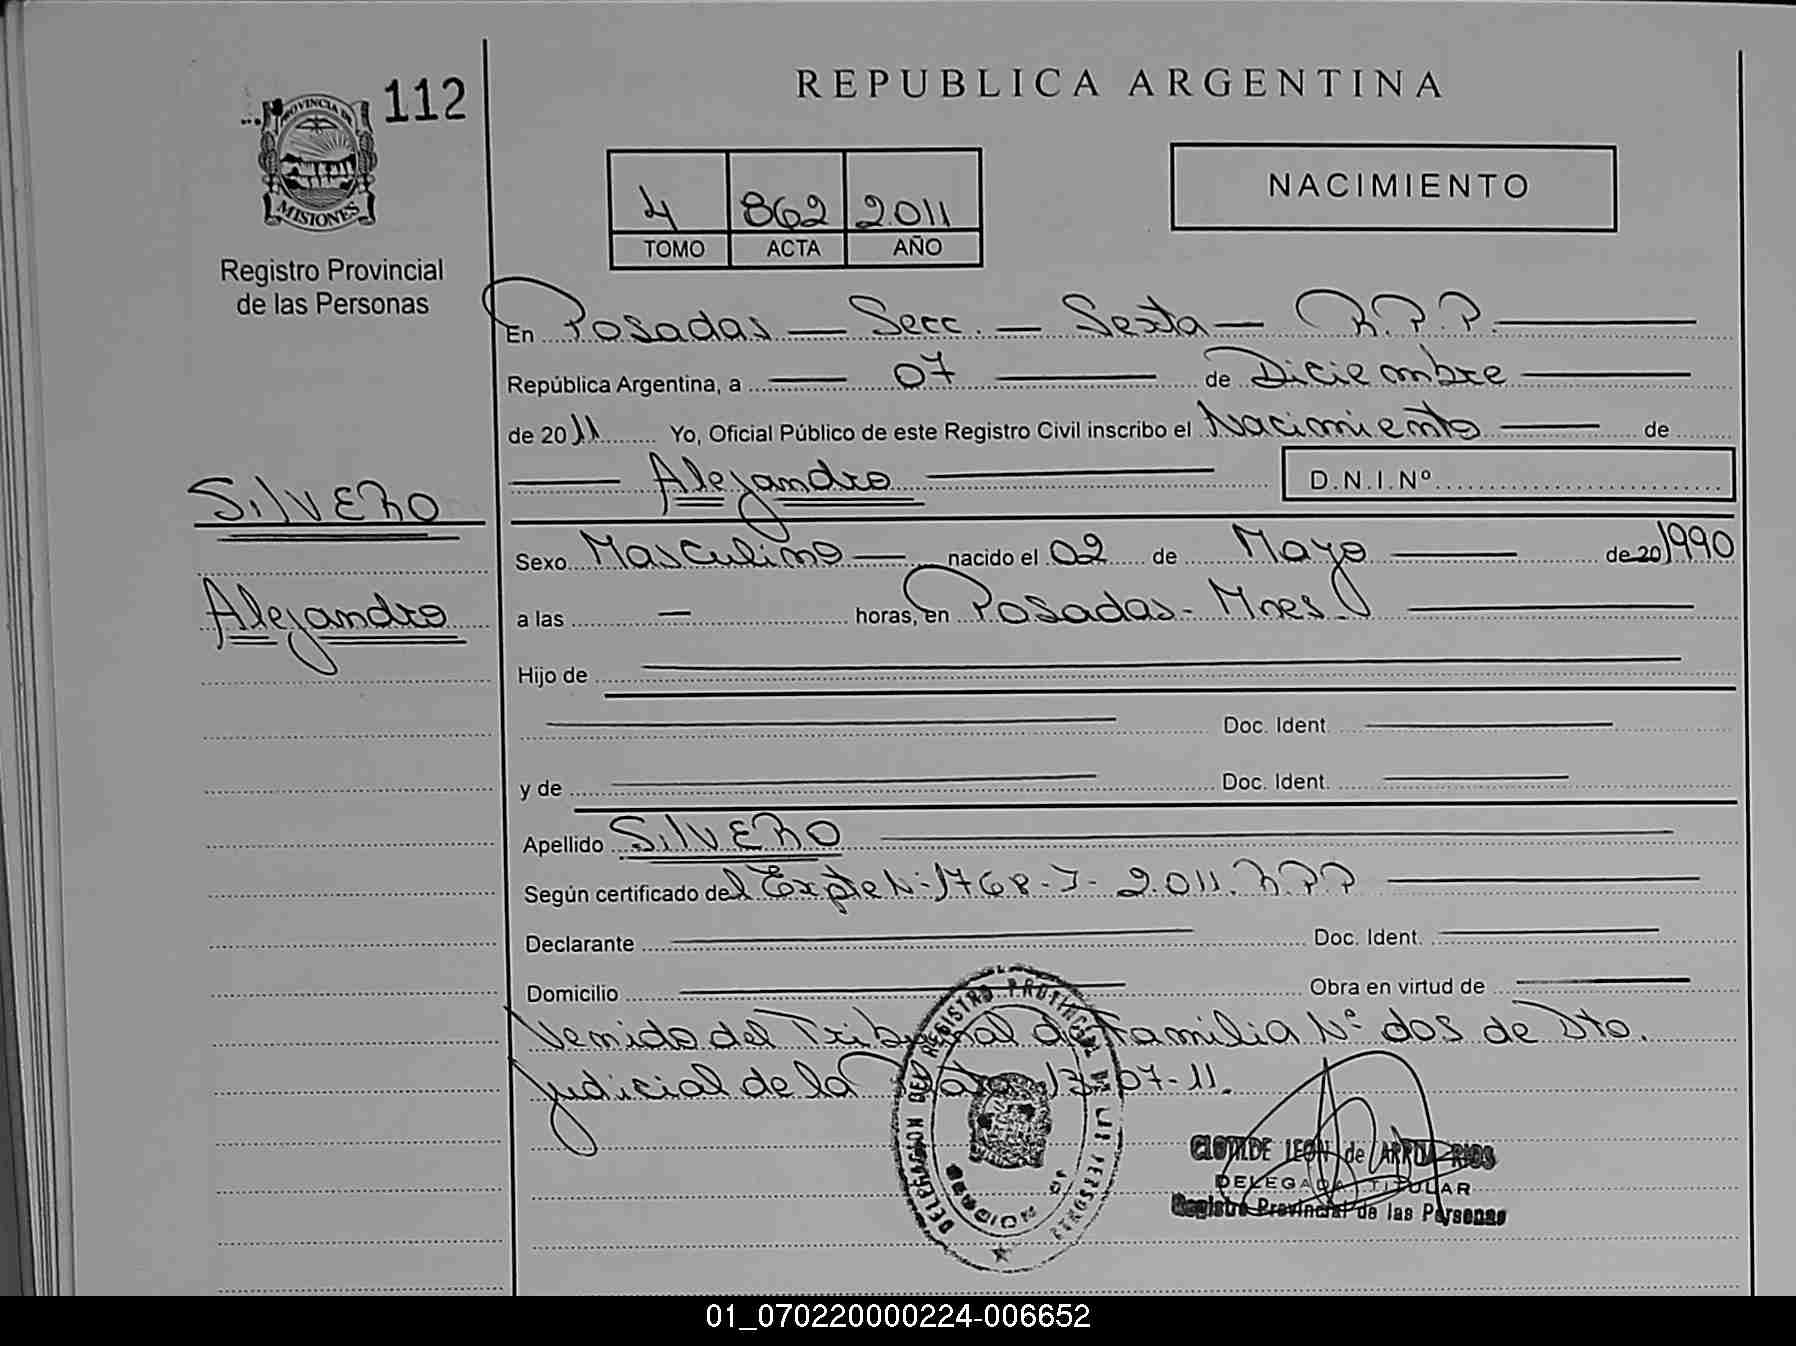 112
PROVINCIA DE
MISIONES
Registro Provincial
de las Personas
REPUBLICA ARGENTINA
NACIMIENTO
4 862 2011
TOMO ACTA AÑO
En Posadas — Secc. — Sexta — R.P.P.
República Argentina, a — 07 — de Diciembre
de 2011 Yo, Oficial Público de este Registro Civil inscribo el Nacimiento — de
— Alejandro — D.N.I.Nº
SILVERO
Alejandro
Sexo Masculino — nacido el 02 de Mayo — de 20 1990
a las — horas, en Posadas - Mnes.
Hijo de
Doc. Ident.
y de Doc. Ident.
Apellido SILVERO
Según certificado del Expte N- 1768-J- 2.011. R.P.P
Declarante Doc. Ident.
Domicilio Obra en virtud de
Venido del Tribunal de Familia Nº dos de Dto.
Judicial de la 13-07-11.
DELEGACION DEL REGISTRO PROVINCIAL DE LAS PERSONAS
CLOTILDE LEON de ARRUA RIOS
DELEGADA TITULAR
Registro Provincial de las Personas
01_070220000224-006652